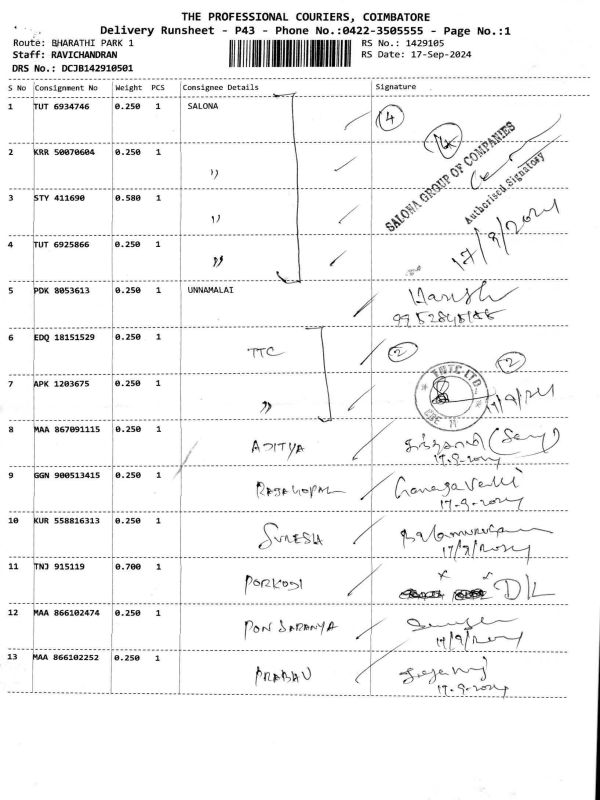 THE PROFESSIONAL COURIERS, COIMBATORE
Delivery Runsheet - P43 - Phone No.:0422-3505555 - Page No.:1
Route: BHARATHI PARK 1 RS No.: 1429105
Staff: RAVICHANDRAN RS Date: 17-Sep-2024
DRS No.: DCJB142910501
S No Consignment No Weight PCS Consignee Details Signature
1 TUT 6934746 0.250 1 SALONA 4
4
2 KRR 50070604 0.250 1 ,,
SALONA GROUP OF COMPANIES
Authorised Signatory
3 STY 411690 0.580 1 ,,
17/9/2024
4 TUT 6925866 0.250 1 ,,
5 PDK 8053613 0.250 1 UNNAMALAI Harish
6 EDQ 18151529 0.250 1 TTC 2 2
7 APK 1203675 0.250 1 ,,
8 MAA 867091115 0.250 1 ADITYA
17.9.2024
9 GGN 900513415 0.250 1 RAJAGOPAL
17.9.2024
10 KUR 558816313 0.250 1 SURESH
17/9/2024
11 TNJ 915119 0.700 1 PORKODI D/L
12 MAA 866102474 0.250 1 PON SARANYA
17/9/2024
13 MAA 866102252 0.250 1 PRABAU
17.9.2024